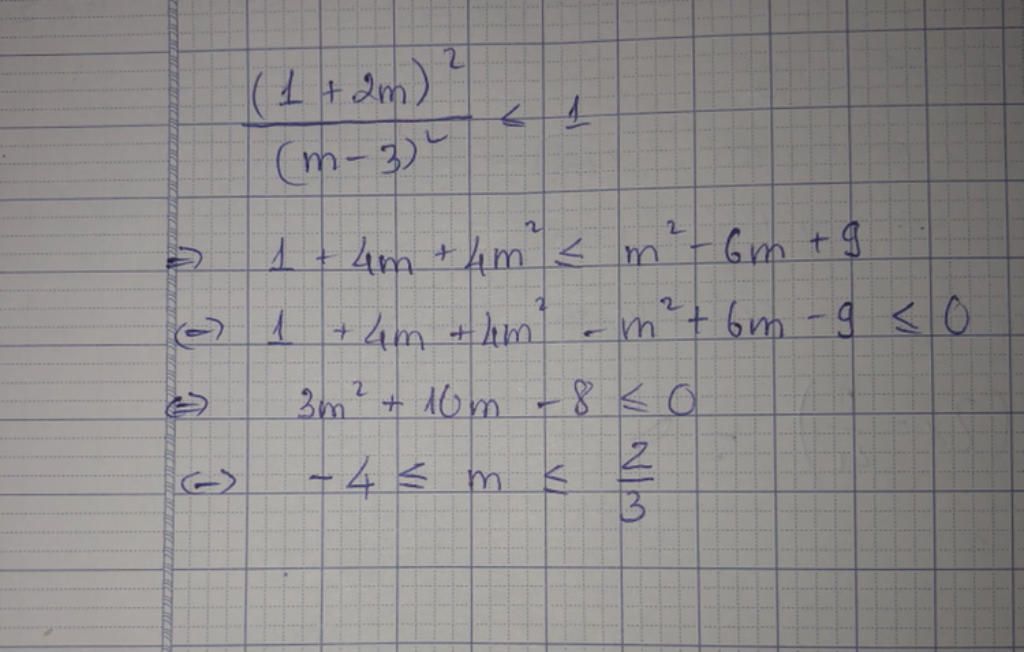 (1 + 2m)² / (m - 3)² ≤ 1
⇒ 1 + 4m + 4m² ≤ m² - 6m + 9
⇔ 1 + 4m + 4m² - m² + 6m - 9 ≤ 0
⇔ 3m² + 10m - 8 ≤ 0
⇔ - 4 ≤ m ≤ 2/3